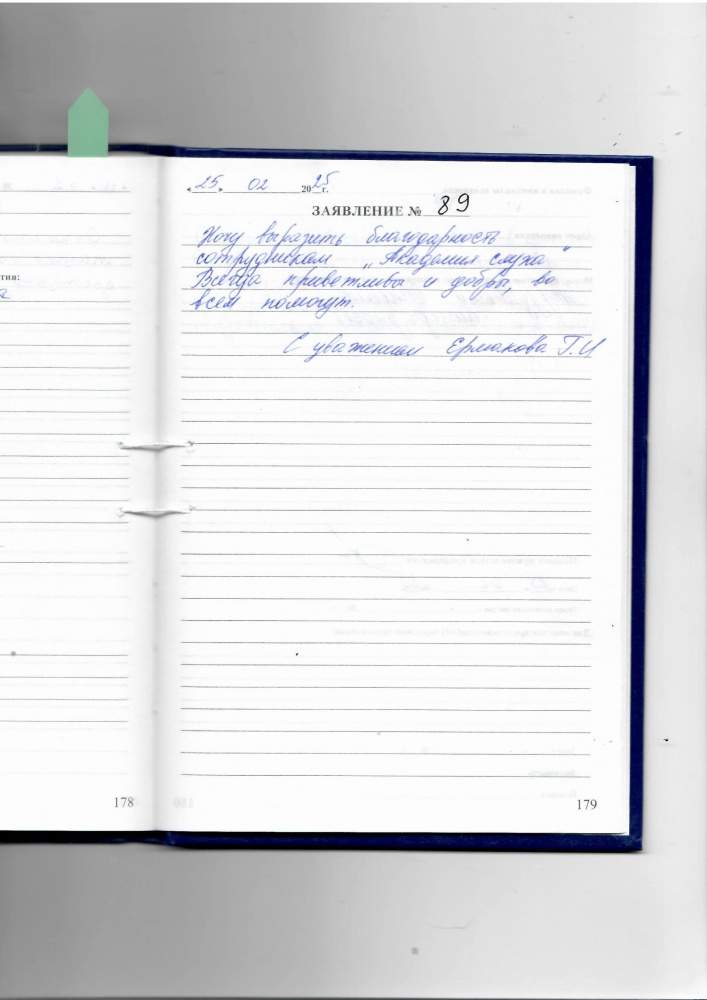 тия:
а
178
«25» 02 2025 г.
ЗАЯВЛЕНИЕ № 89
Хочу выразить благодарность
сотрудникам „Академия слуха"
Всегда приветливы и добры, во
всем помогут.
С уважением Ермакова Т.И
179